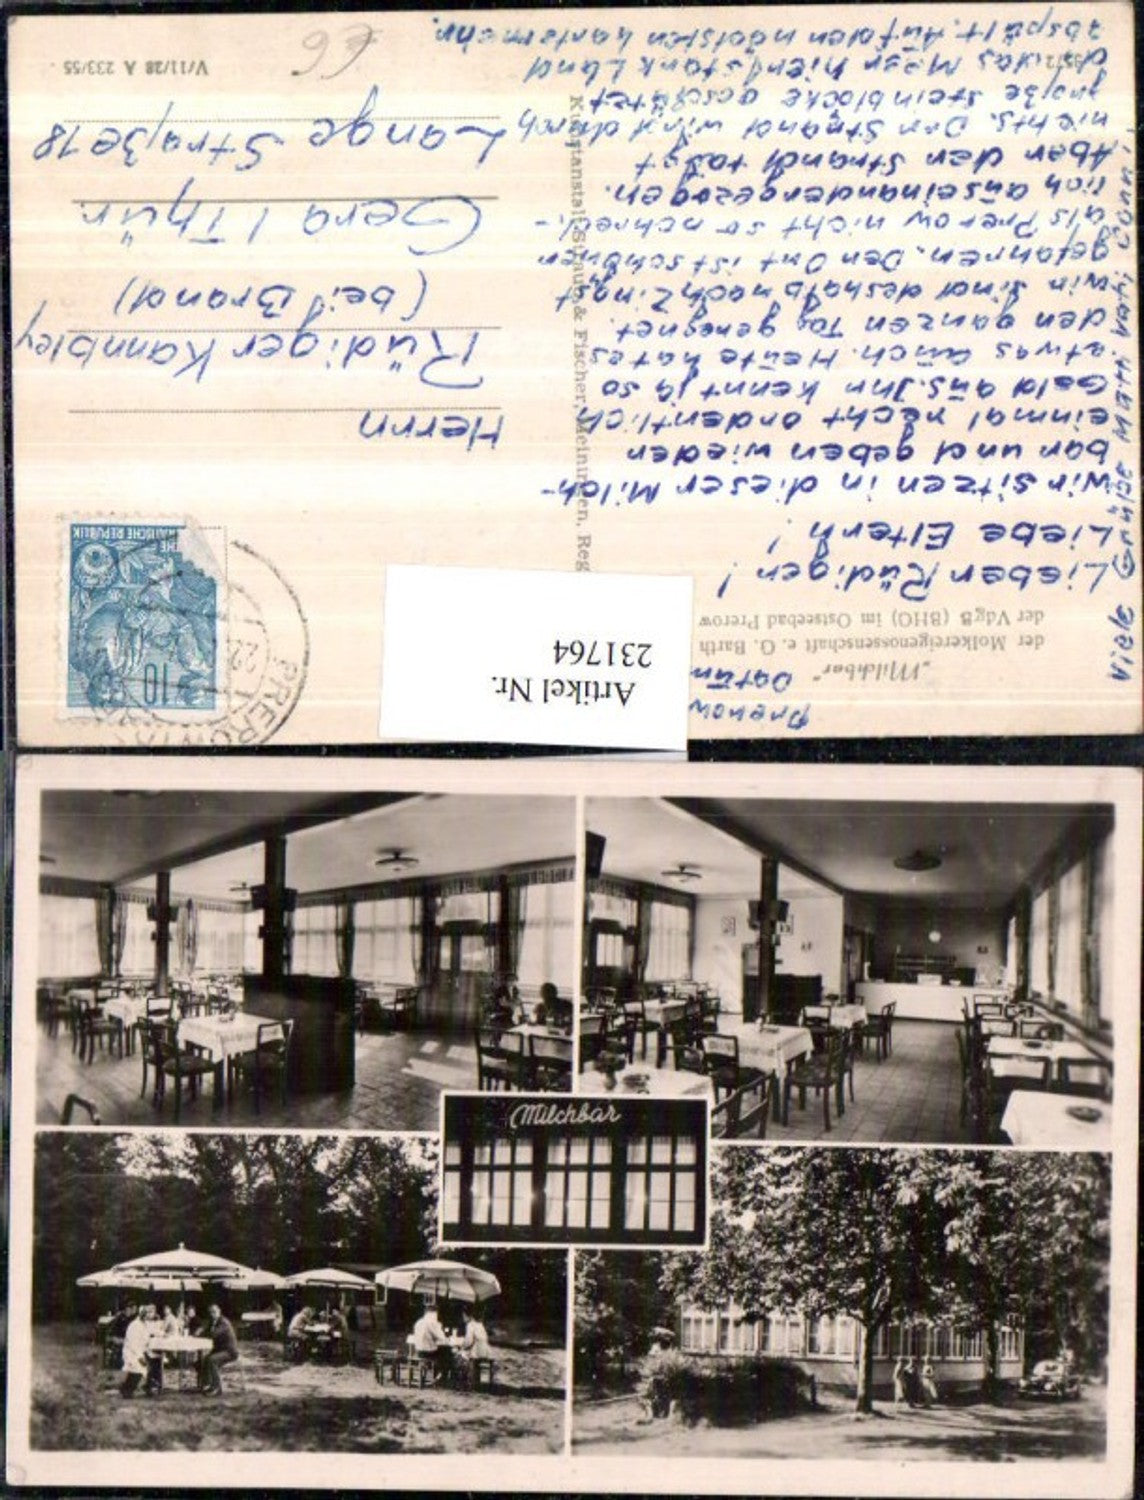 Prerow
Datum
„Milchbar“
der Molkereigenossenschaft e. G. Barth
der VdgB (BHG) im Ostseebad Prerow
Lieber Rüdiger!
Liebe Eltern!
Wir sitzen in dieser Milch-
bar und geben wieder
einmal recht ordentlich
Geld aus. Ihr kennt ja so
etwas auch. Heute hat es
den ganzen Tag geregnet.
Wir sind deshalb nach Zingst
gefahren. Der Ort ist schöner
als Prerow nicht so schreck-
lich auseinandergezogen.
Aber der Strand taugt
nichts. Der Strand wird durch
große Steinblöcke geschützt
da das Meer hier stark Land
abspült.
Viele
Grüße
Kunstanstalt Straub & Fischer, Meiningen, Reg
Herrn
Rüdiger Kannbley
(bei Brand)
Gera / Thür.
Lange Straße 18
V/11/28 A 233/55
€6
10
PREROW
22
Artikel Nr.
231764
Milchbar